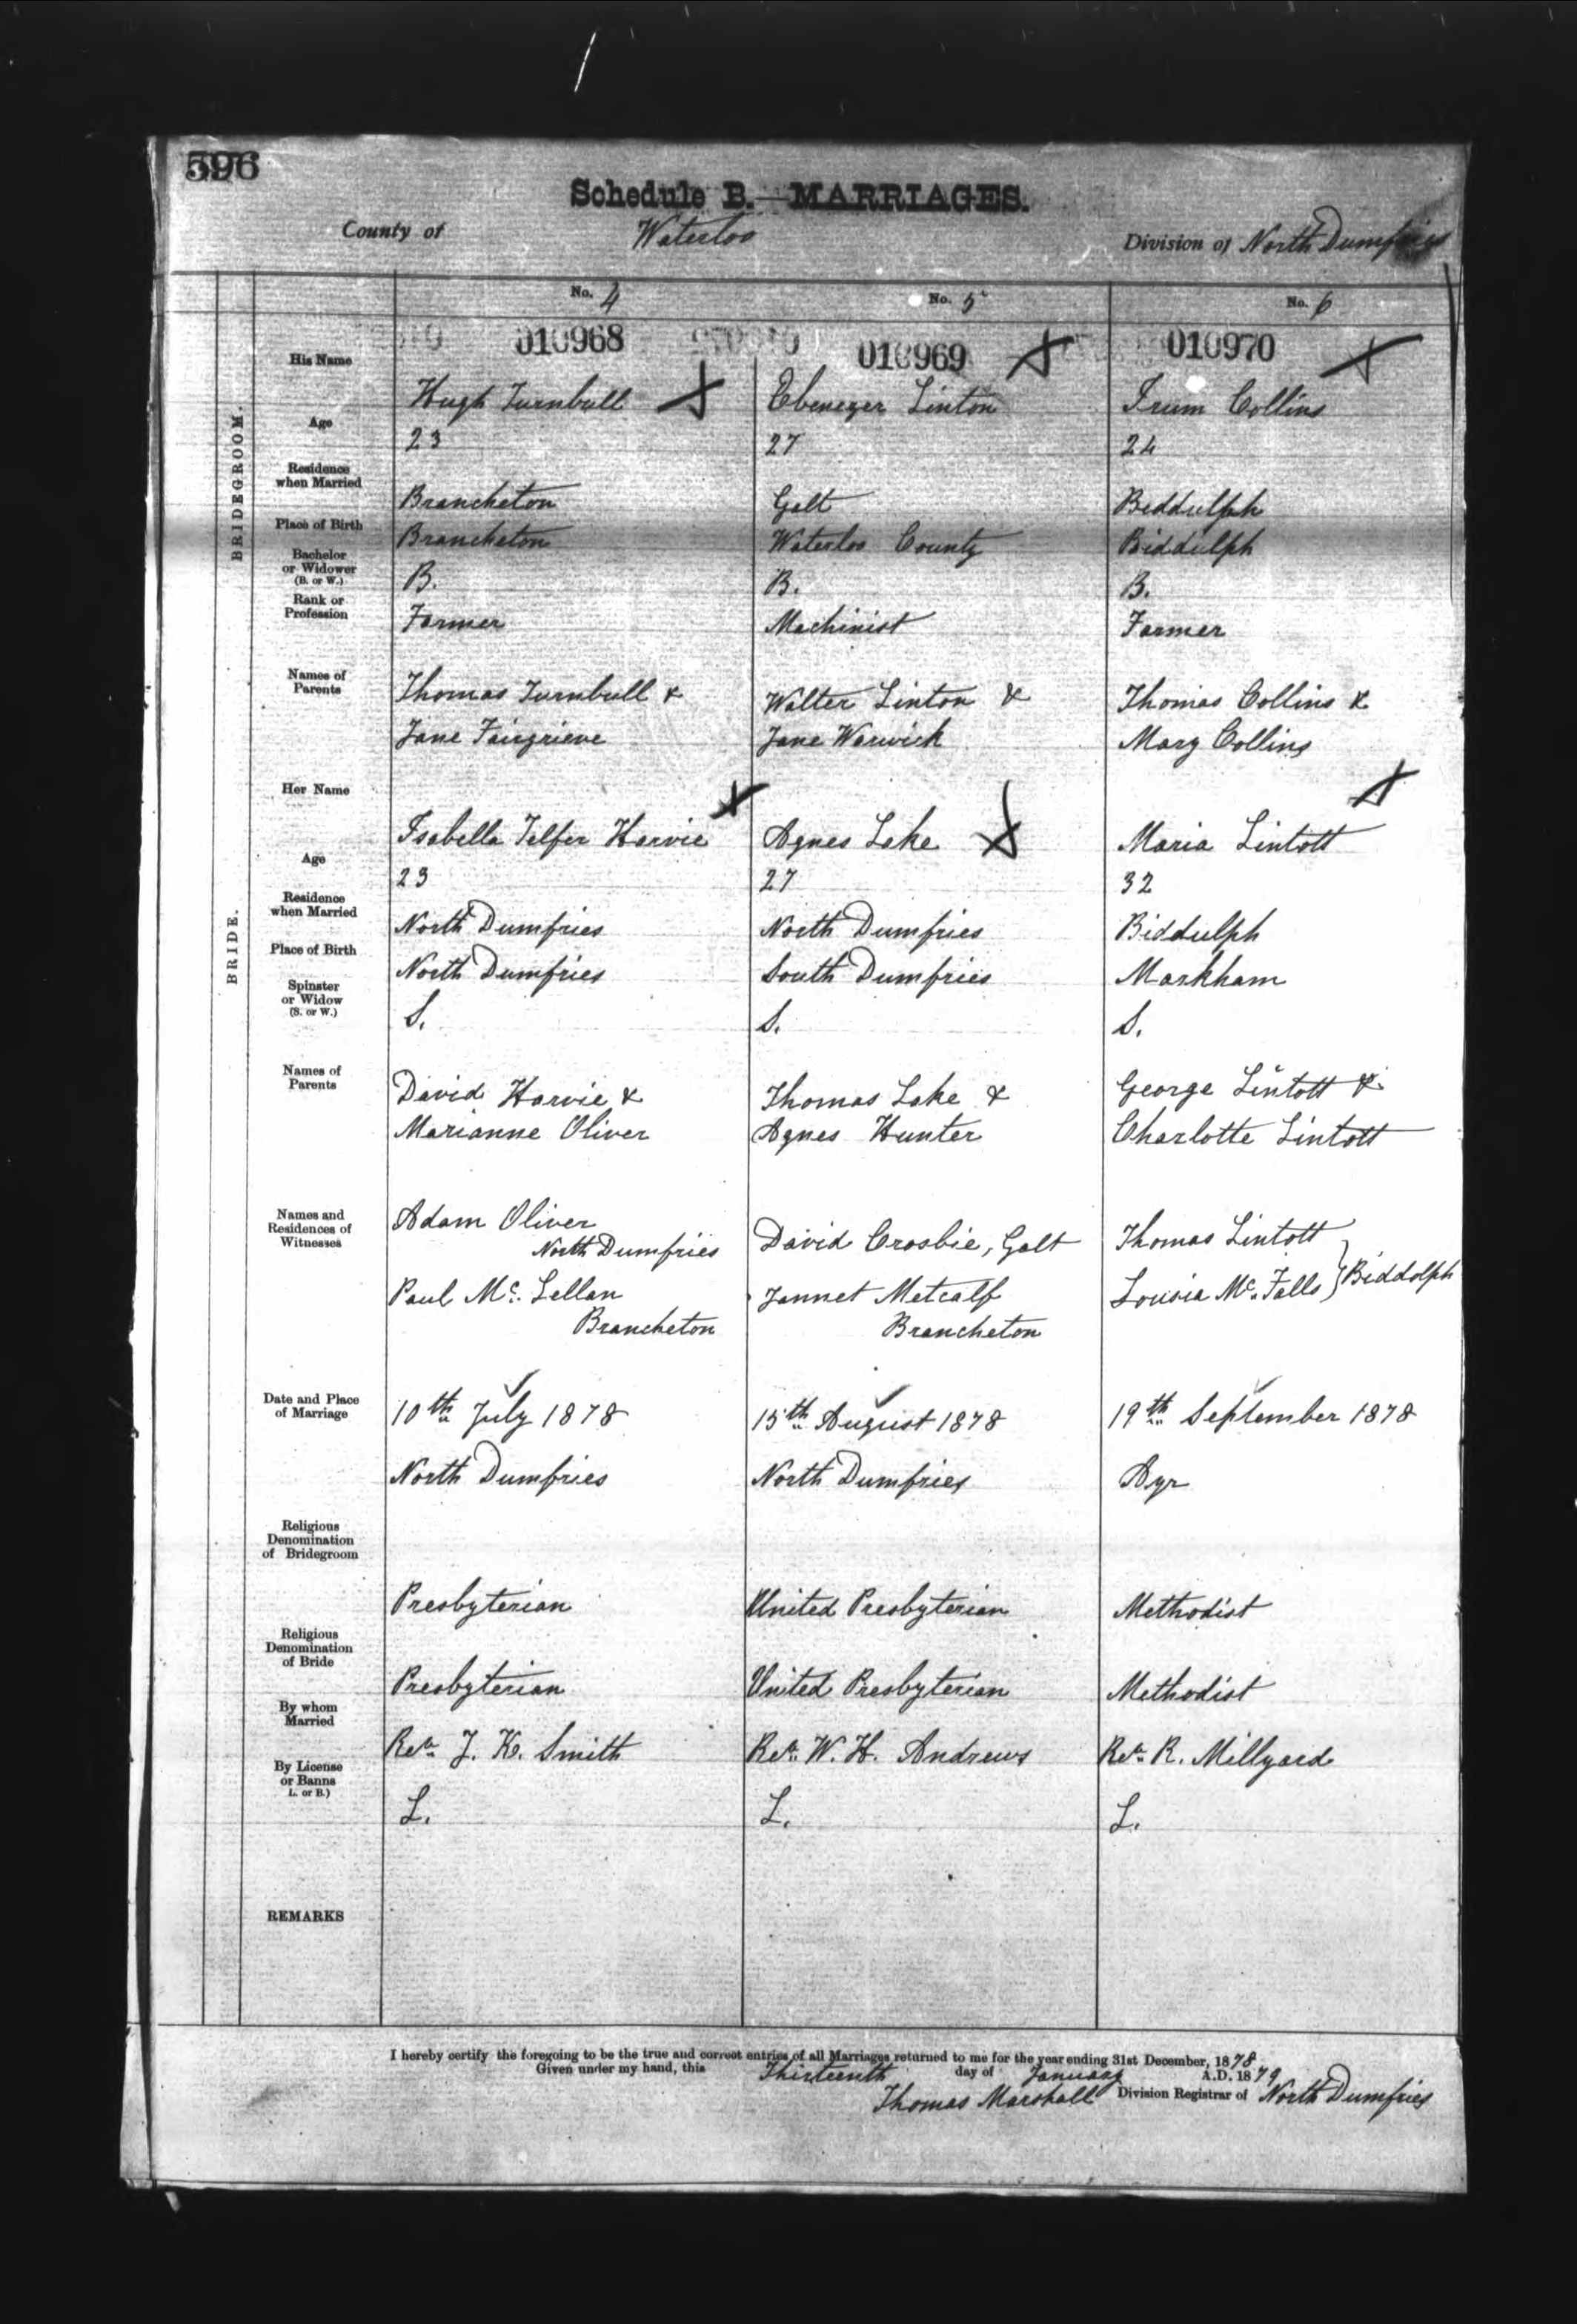 596
Schedule B.—MARRIAGES.
County of Waterloo Division of North Dumfries
No. 4 No. 5 No. 6
010968 010969 010970
BRIDEGROOM.
His Name Hugh Turnbull Ebenezer Linton Irum Collins
Age 23 27 24
Residence when Married Brancheton Galt Biddulph
Place of Birth Brancheton Waterloo County Biddulph
Bachelor or Widower (B. or W.) B. B. B.
Rank or Profession Farmer Machinist Farmer
Names of Parents Thomas Turnbull & Walter Linton & Thomas Collins &
Jane Fairgrieve Jane Warwick Mary Collins
BRIDE.
Her Name Isabella Telfer Harvie Agnes Lake Maria Lintott
Age 23 27 32
Residence when Married North Dumfries North Dumfries Biddulph
Place of Birth North Dumfries South Dumfries Markham
Spinster or Widow (S. or W.) S. S. S.
Names of Parents David Harvie & Thomas Lake & George Lintott &
Marianne Oliver Agnes Hunter Charlotte Lintott
Names and Residences of Witnesses Adam Oliver David Crosbie, Galt Thomas Lintott
North Dumfries
Paul Mc. Lellan Jannet Metcalf Louisa Mc. Falls } Biddolph
Brancheton Brancheton
Date and Place of Marriage 10th July 1878 15th August 1878 19th September 1878
North Dumfries North Dumfries Ayr
Religious Denomination of Bridegroom Presbyterian United Presbyterian Methodist
Religious Denomination of Bride Presbyterian United Presbyterian Methodist
By whom Married Revd. J. K. Smith Revd. W. H. Andrews Revd. R. Millyard
By License or Banns L. or B.) L. L. L.
REMARKS
I hereby certify the foregoing to be the true and correct entries of all Marriages returned to me for the year ending 31st December, 1878
Given under my hand, this Thirteenth day of January A.D. 1879
Thomas Marshall Division Registrar of North Dumfries